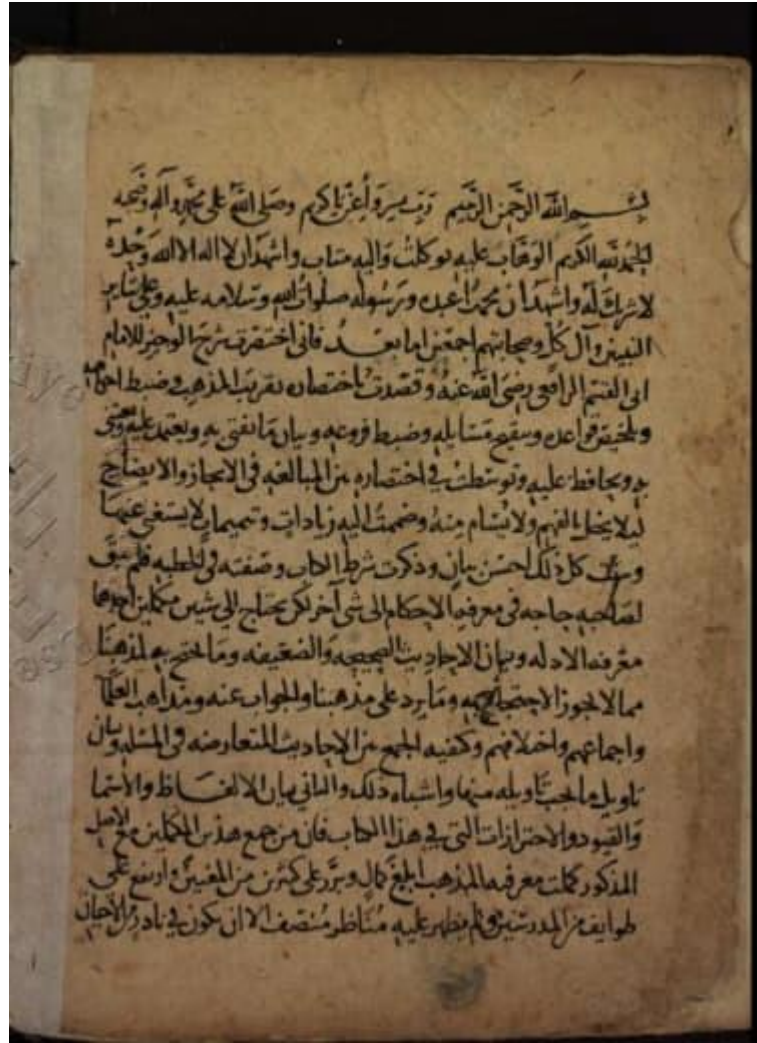 بسم الله الرحمن الرحيم رب يسر وأعن يا كريم وصلى الله على محمد وآله وصحبه
الحمد لله الكريم الوهاب عليه توكلت واليه متاب واشهد ان لا اله الا الله وحده
لا شريك له واشهد ان محمدا عبده ورسوله صلوات الله وسلامه عليه وعلى ساير
النبيين وآل كل وصحابتهم اجمعين اما بعد فاني اختصرت شرح الوجيز للامام
ابي القسم الرافعي رضي الله عنه وقصدت باختصاره تقريب المذهب وضبط احكامه
وتلخيص قواعده وتنقيح مسايله وضبط فروعه وبيان ما يفتى به ويعتمد عليه ويعتنى
به ويحافظ عليه وتوسطت في اختصاره بين المبالغه في الايجاز والايضاح
ليلا يخل بالفهم ولا يسام منه وضممت اليه زيادات وتتميمات لا يستغنى عنها
وبينت كل ذلك احسن بيان وذكرت شرط الكتاب وصفته في الخطبه فلم يبق
لصاحبه حاجه في معرفه الاحكام الى شي آخر لكن يحتاج الى شيين مكملين احدهما
معرفه الادله وبيان الاحاديث الصحيحه والضعيفه وما يحتج به لمذهبنا
مما لا يجوز الاحتجاج به وما يرد على مذهبنا والجواب عنه ومذاهب العلما
واجماعهم واختلافهم وكيفيه الجمع بين الاحاديث المتعارضه في المسله وبيان
تاويل ما يجب تاويله منها واشباه ذلك والثاني بيان الالفاظ والاسما
والقيود والاحترازات التي في هذا الكتاب فان من جمع هذين المكملين مع الاصل
المذكور كملت معرفته المذهب ابلغ كمال وبرز على كثيرين من المفتين وارتفع على
طوايف من المدرسين ولم يظهر عليه مناظر منصف الا ان يكون في نادر من الاحيان